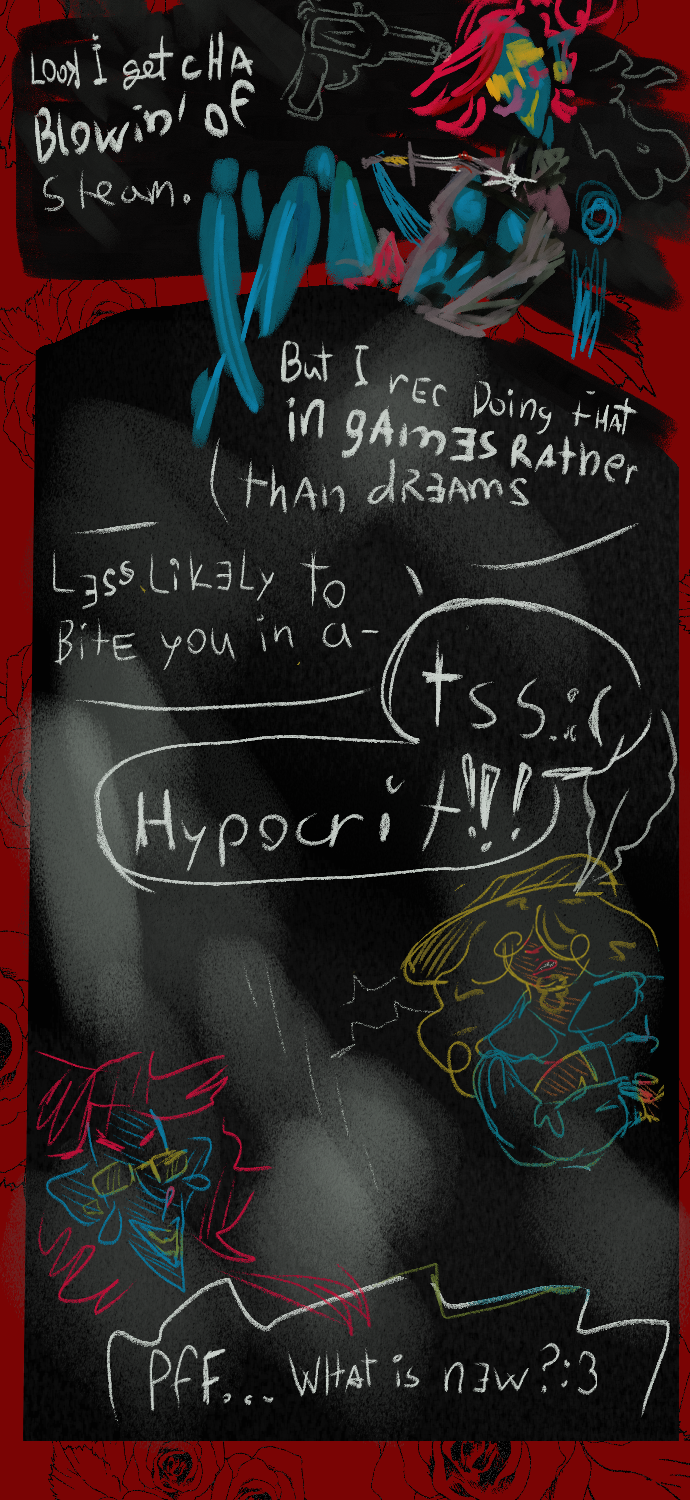 Look i get cHA
Blowin' Of
Steam.
But I rec Doing tHAt
in gAmƎs RAther
thAn dRƎAms
LƎss LikƎLy To
BitE you in a-
tss..:(
Hypocrit!!!
Pff... WHAt is nƎw?:3